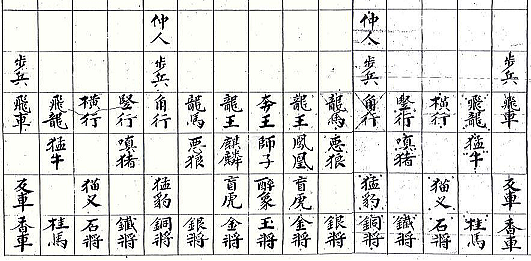 仲人 仲人
步兵 步兵 步兵 步兵
飛車 飛龍 横行 竪行 角行 龍馬 龍王 奔王 龍王 龍馬 角行 竪行 横行 飛龍 飛車
猛牛 嗔猪 悪狼 麒麟 師子 鳳凰 悪狼 嗔猪 猛牛
反車 猫叉 猛豹 盲虎 酔象 盲虎 猛豹 猫叉 反車
香車 桂馬 石将 鐵将 銅将 銀将 金将 王将 金将 銀将 銅将 鐵将 石将 桂馬 香車